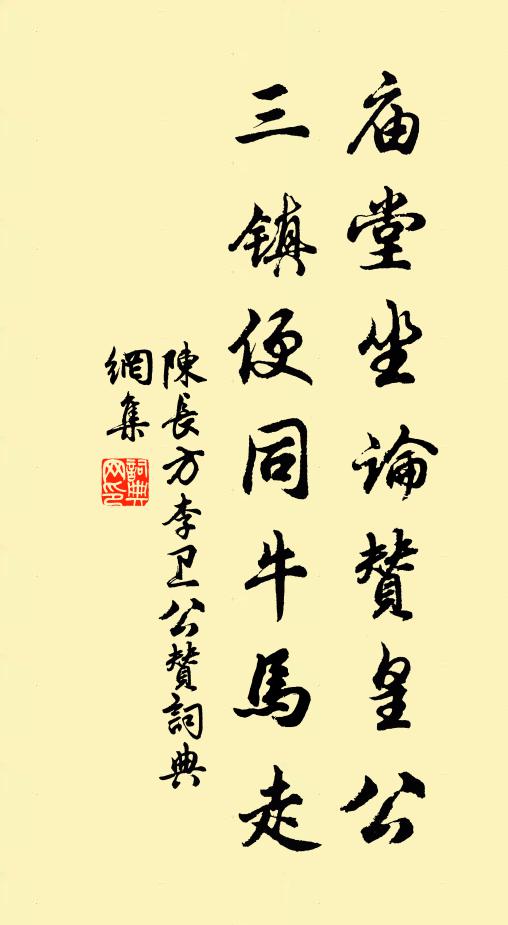 庙堂坐論賛皇公
三镇便同牛馬走
陳長方李卫公賛詞典
網集
詞典
网印